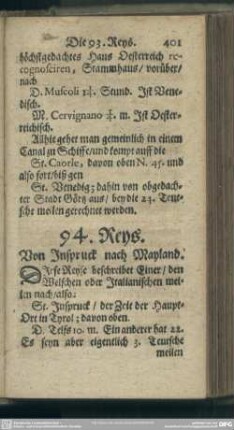 Die 93. Reys. 401
höchstgedachtes Haus Oesterreich re-
cognosciren, Stammhaus/ vorüber/
nach
D. Muscoli 1¼. Stund. Ist Vene-
disch.
M. Cervignano ¾. m. Ist Oester-
reichisch.
Allhie gehet man gemeinlich in einem
Canal zu Schiffe/ und kompt auff die
St. Caorle, davon oben N. 45. und
also fort/ biß gen
St. Venedig; dahin von obgedach-
ter Stadt Görz aus/ bey die 23. Teut-
sche meilen gerechnet werden.
94. Reys.
Von Insprück nach Mayland.
Diese Reyse beschreibet Einer/ den
Welschen oder Italianischen mei-
len nach/ also:
St. Insprück/ der Zeit der Haupt-
Ort in Tyrol; davon oben.
D. Telfs 10. m. Ein anderer hat 22.
Es seyn aber eigentlich 3. Teutsche
meilen